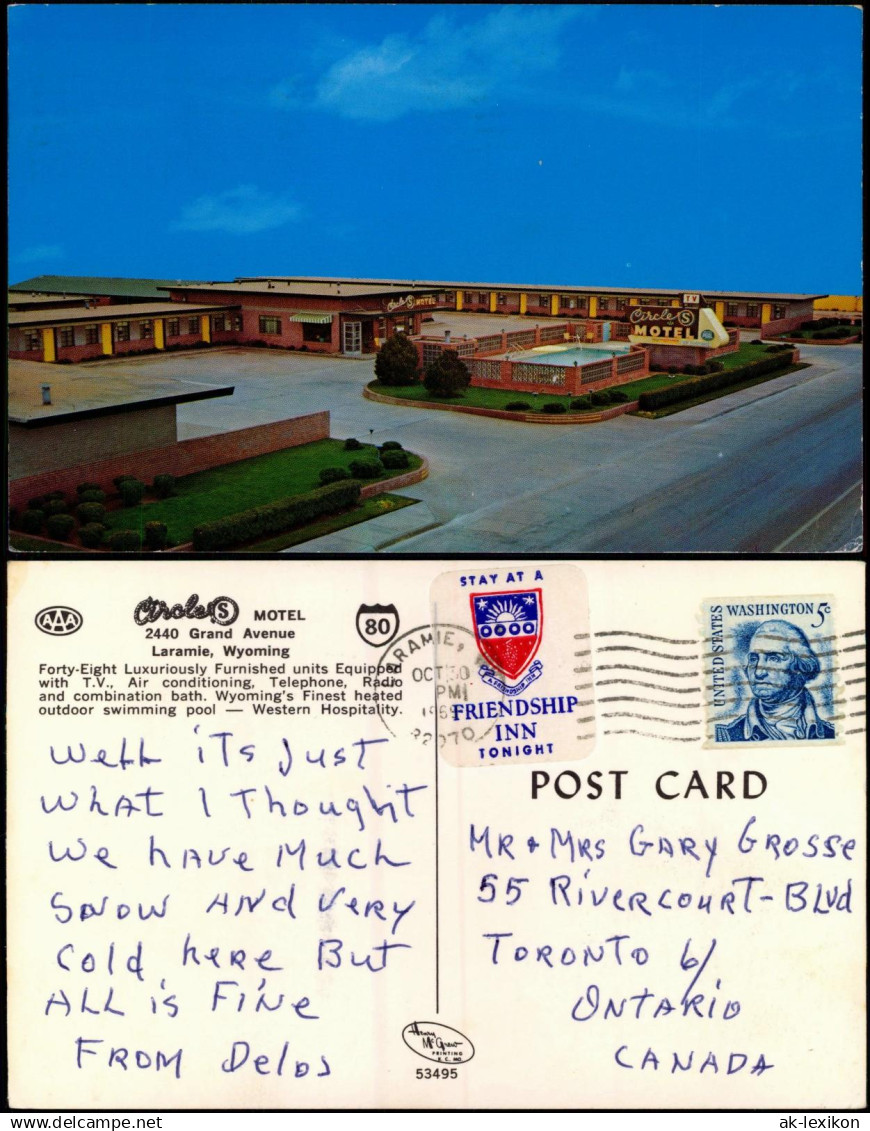 Circle S MOTEL
TV
Circle S
MOTEL
AAA
Circle S MOTEL
2440 Grand Avenue
Laramie, Wyoming
80
Forty-Eight Luxuriously Furnished units Equipped
with T.V., Air conditioning, Telephone, Radio
and combination bath. Wyoming's Finest heated
outdoor swimming pool — Western Hospitality.
Well its Just
What I Thought
We have Much
Snow And Very
Cold here But
ALL is Fine
FROM Delos
LARAMIE,
OCT 30
PM
82070
STAY AT A
A FRIENDSHIP INN
FRIENDSHIP
INN
TONIGHT
UNITED STATES
WASHINGTON 5c
POST CARD
MR & MRS GARY GROSSE
55 RIVERCOURT-BLVD
TORONTO 6/
ONTARIO
CANADA
Henry
McGrew
PRINTING
K. C. MO.
53495
ak-lexikon